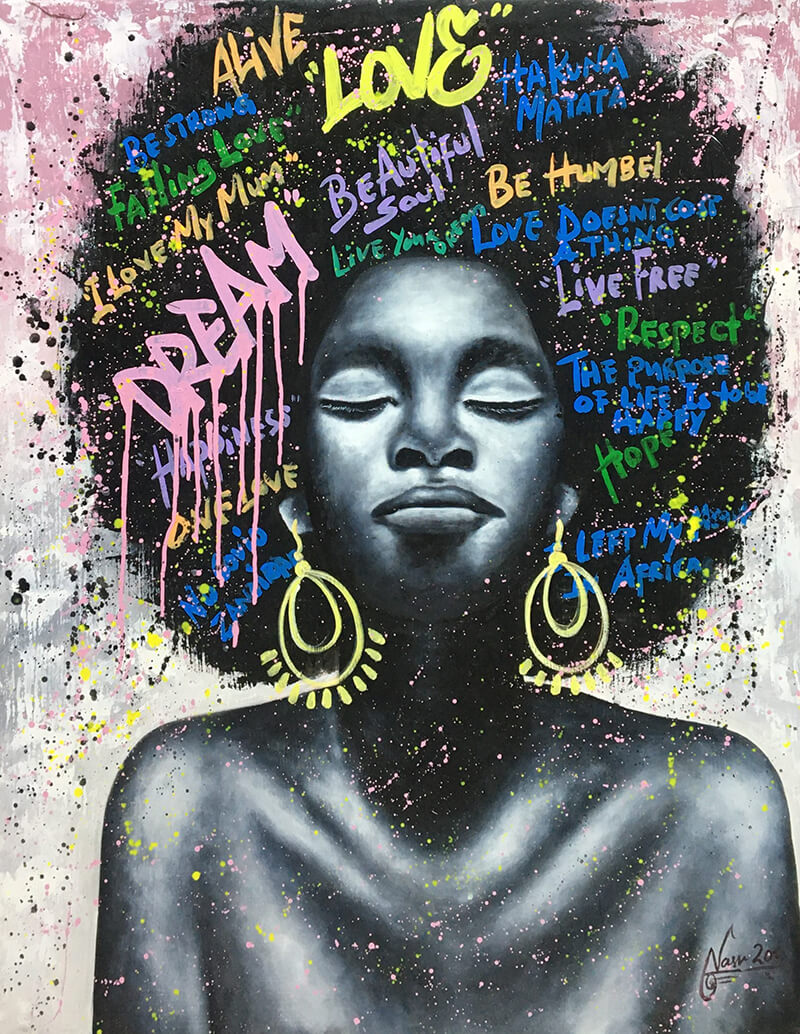 ALIVE
"LOVE"
HAKUNA
MATATA
BE STRONG
FALLING LOVE"
I LOVE MY MUM"
BEAUTIFUL
SOUL
BE HUMBEL
LIVE YOUR DREAM
LOVE DOESNT COST
A THING
"LIVE FREE"
DREAM
"RESPECT"
THE PURPOSE
OF LIFE IS to be
HAPPY
"HAPPINESS"
HOPE
ONE LOVE
NO COVID
I LEFT MY
IN AFRICA